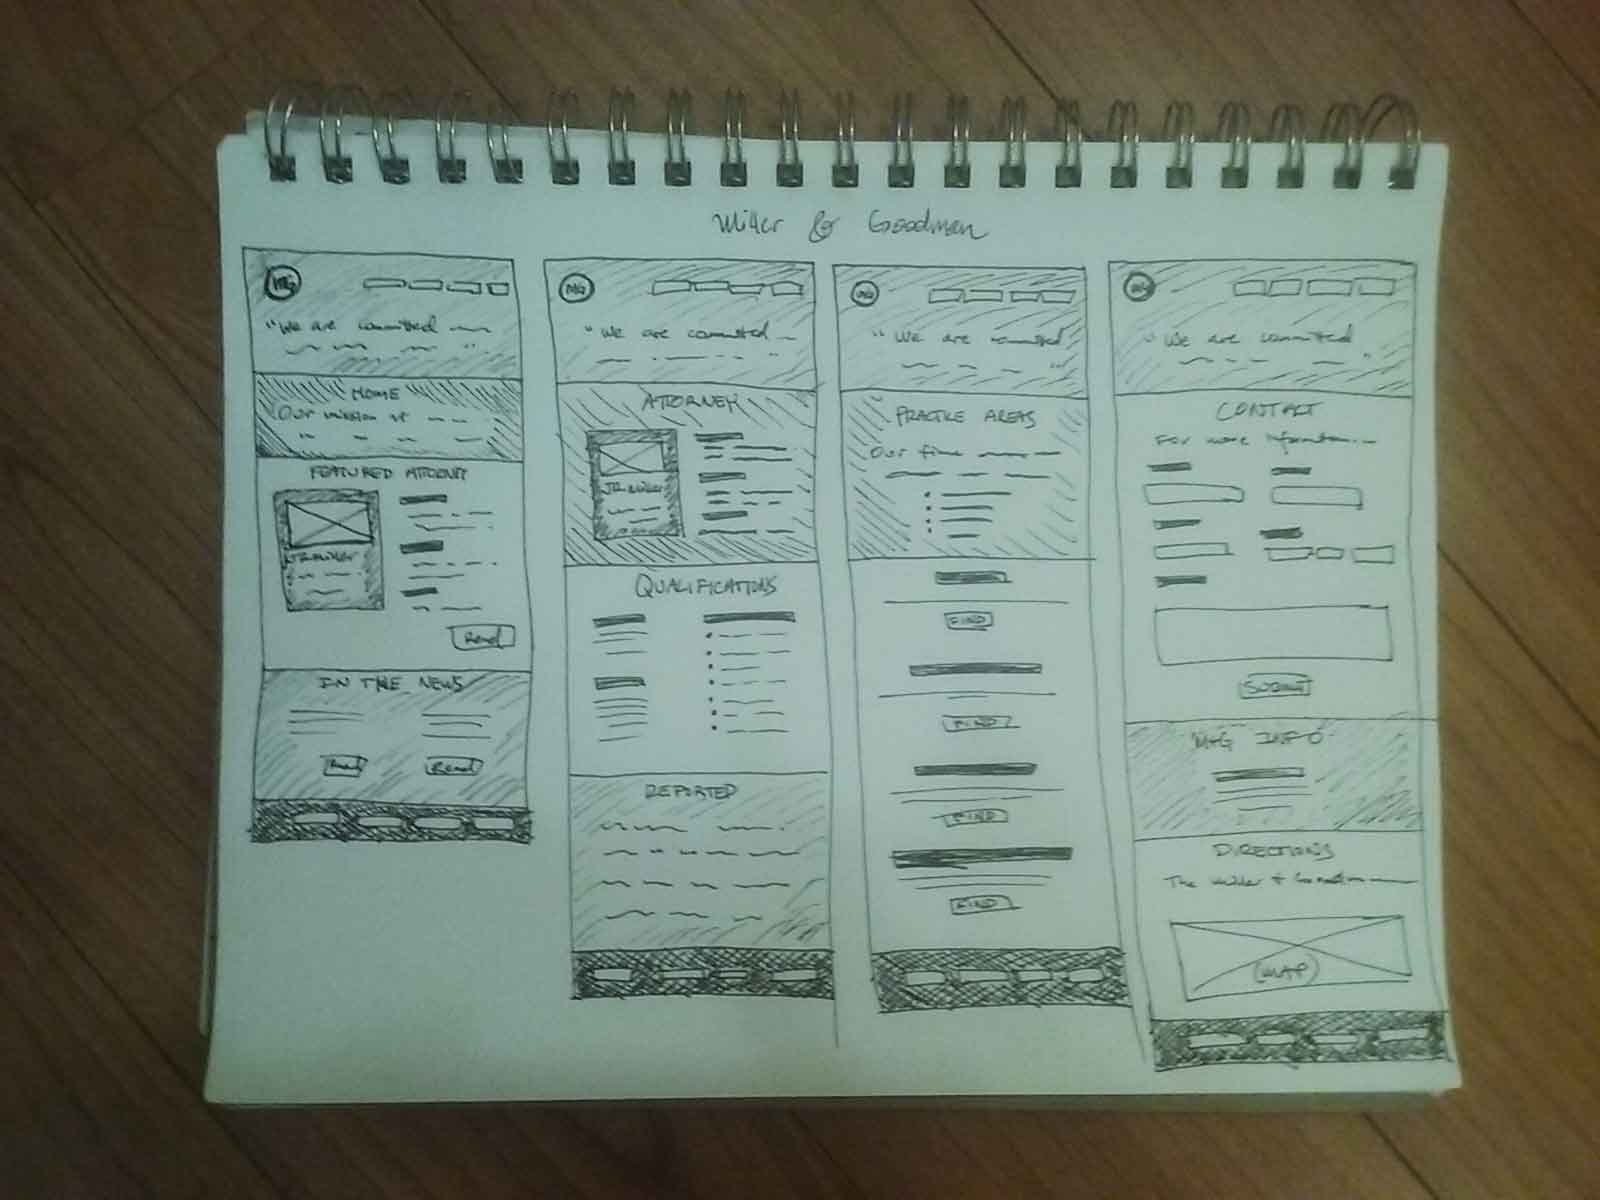 Miller & Goodman
MG
"We are committed
"
HOME
Our mission at
FEATURED ATTORNEY
JR Miller
Read
IN THE NEWS
Read
Read
MG
"We are committed
"
ATTORNEY
JR Miller
QUALIFICATIONS
REPORTED
MG
"We are committed
"
PRACTICE AREAS
Our firm
FIND
FIND
FIND
FIND
MG
"We are committed
"
CONTACT
For more information...
SUBMIT
M+G INFO
DIRECTIONS
The Miller + Goodman
(MAP)